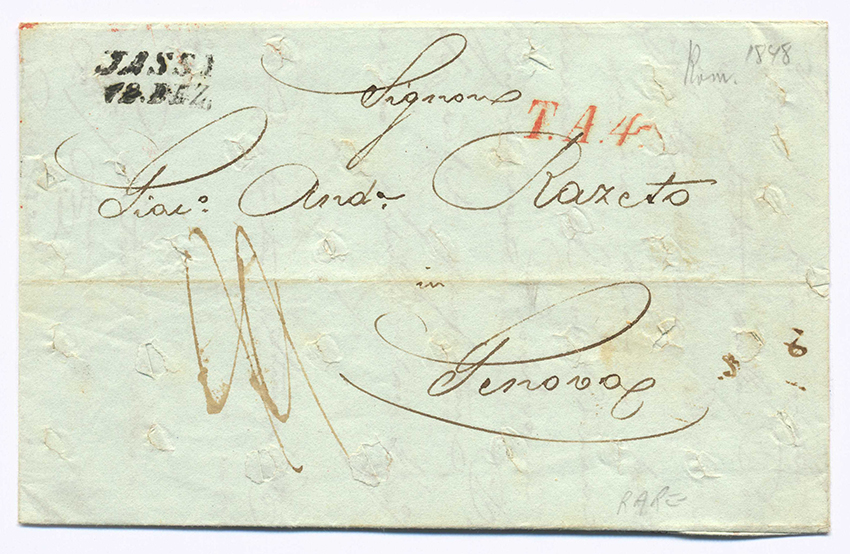 JASSI
12.DEZ.
Rom. 1848
Signor
T.A.4.
Giac.º And.ª Razeto
in
Genova
RARE